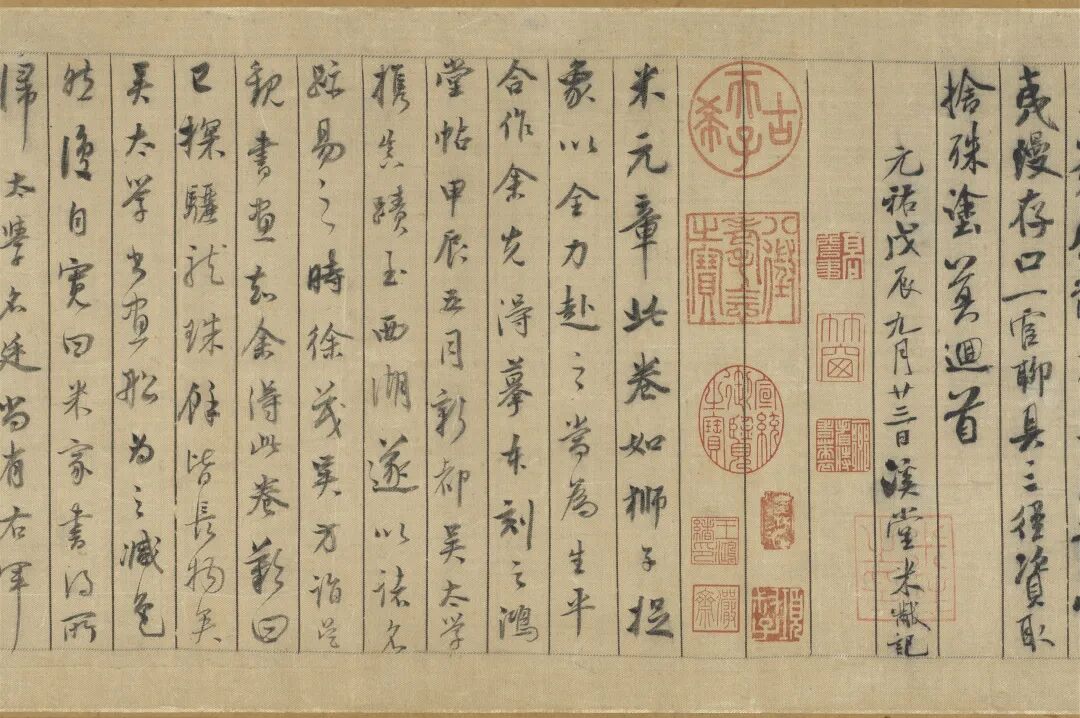 夷漫存口一官聊具三徑資取
捨殊塗莫迴首
元祐戊辰九月廿三日溪堂米黻記
竹窗
古希天子
八徵耄念之寶
宣統御覽之寶
王鴻緒印
儼齋
米元章此卷如獅子捉
象以全力赴之當為生平
合作余先得摹本刻之鴻
堂帖甲辰五月新都吳太學
攜真蹟至西湖遂以諸名
跡易之時徐茂吳方詣吳
觀書畫知余得此卷歎曰
已探驪龍珠餘皆長物矣
吳太學書畫船為之減色
然復自寬曰米家書得所
歸太學名廷尚有右軍